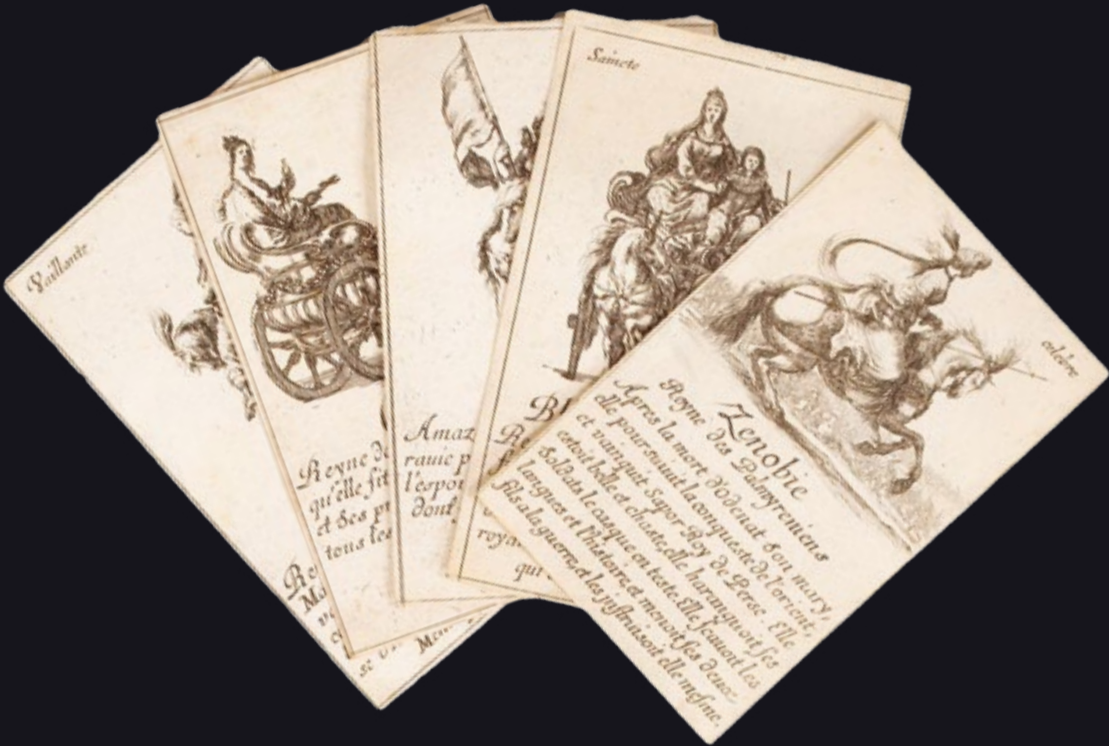 Vaillante
Re
Ma
Men
Reyne de
qu'elle fit
et ses pr
tous les
Amaz
rauie p
l'espou
dont
Saincte
Bl
Re
roya
qui
celebre
Zenobie
Reyne des Palmyreniens
Apres la mort d'odenat son mary,
elle poursuiuit la conqueste de l'orient,
et vainquit Sapor Roy de Perse. Elle
estoit belle et chaste, elle haranguoit ses
Soldats le casque en teste. Elle scauoit les
langues et l'histoire, et menoit ses deux
fils a la guerre, et les instruisoit elle mesme.